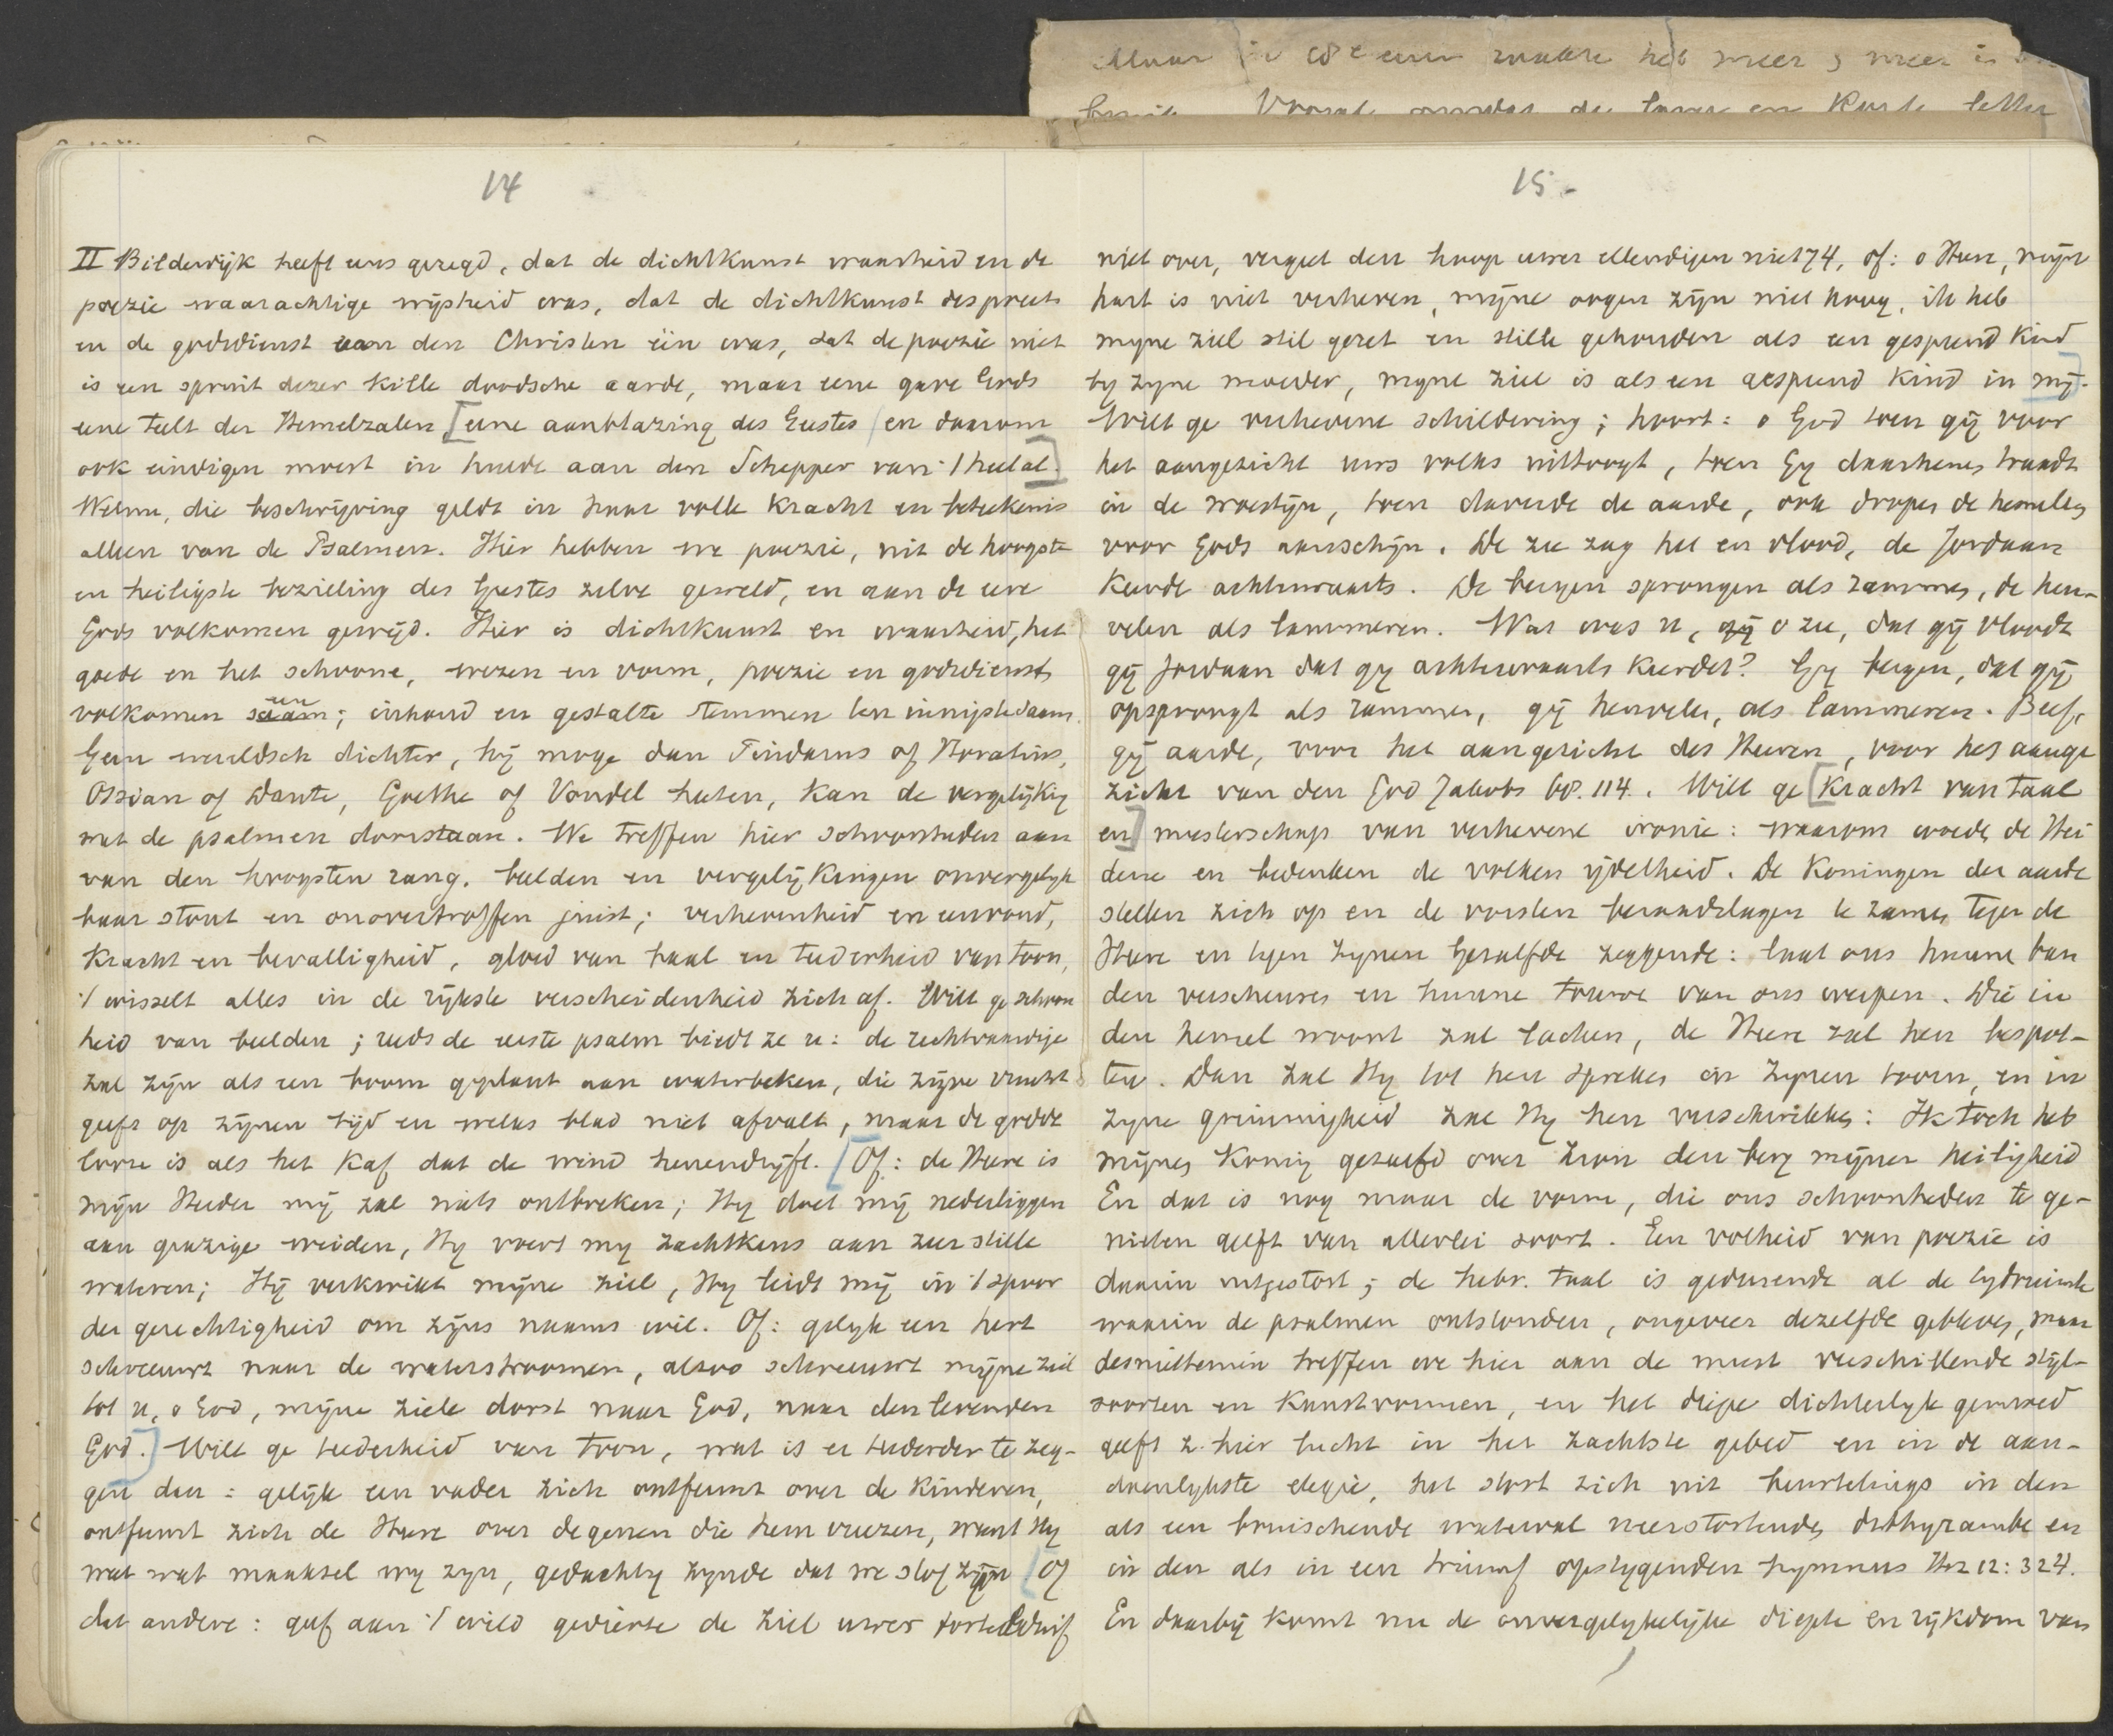 Maar in 18e eeuw raakte het meer & meer in
Vooral omdat de
14
II Bilderdijk heeft ons gezegd, dat de dichtkunst waarheid en de
poezie waarachtige wijsheid was, dat de dichtkunst des profeets
en de godsdienst van den Christen één was, dat de poezie niet
is een spruit dezer kille doodsche aarde, maar eene gave Gods
eene teelt der Hemelzalen [eene aanblazing des Geestes / en daarom
ook eindigen moest in hulde aan den Schepper van 't heelal.]
Welnu, die beschrijving geldt in haar volle kracht en beteekenis
alleen van de Psalmen. Hier hebben we poezie, uit de hoogste
en heiligste bezieling des Geestes zelve geweld, en aan de eere
Gods volkomen gewijd. Hier is dichtkunst en waarheid, het
goede en het schoone, wezen en vorm, poezie en godsdienst
volkomen een; inhoud en gestalte stemmen ten innigste saam.
Geen wereldsch dichter, hij moge dan Pindarus of Horatius,
Ossian of Dante, Goethe of Vondel heeten, kan de vergelijking
met de psalmen doorstaan. We treffen hier schoonheden aan
van den hoogsten rang. beelden en vergelijkingen onvergelijk
baar stout en onovertroffen juist; verhevenheid en eenvoud,
kracht en bevalligheid, gloed van taal en teederheid van toon,
't wisselt alles in de rijkste verscheidenheid zich af. Wilt ge schoon
heid van beelden; reeds de eerste psalm biedt ze u: de rechtvaardige
zal zijn als een boom geplant aan waterbeken, die zijne vrucht
geeft op zijnen tijd en welks blad niet afvalt, maar de godde
looze is als het kaf dat de wind henendrijft. [Of: de Heere is
mijn Herder mij zal niets ontbreken; Hij doet mij nederliggen
aan grazige weiden, Hij voert mij zachtkens aan zeer stille
wateren; Hij verkwikt mijne ziel, Hij leidt mij in 't spoor
der gerechtigheid om zijns naams wil. Of: gelijk een hert
schreeuwt naar de waterstroomen, alzoo schreeuwt mijne ziel
tot u, o God, mijne ziele dorst naar God, naar den levenden
God.] Wilt ge teederheid van toon, wat is er teederder te zeg-
gen dan: gelijk een vader zich ontfermt over de kinderen,
ontfermt zich de Heere over degenen die hem vreezen, want Hij
weet wat maaksel wij zijn, gedachtig zijnde dat we stof zijn [Of
dat andere: geef aan 't wild gedierte de ziel uwer tortelduif
15.
niet over, vergeet den hoop uwer ellendigen niet 74, of: o Heere, mijn
hart is niet verheven, mijne oogen zijn niet hoog, ik heb
mijne ziel stil gezet en stille gehouden als een gespeend kind
bij zijne moeder, mijne ziel is als een gespeend kind in mij.]
Wilt ge verhevene schildering; hoort: o God toen gij voor
het aangezicht uws volks uittoogt, toen Gij daarhenen traadt
in de woestijn, toen daverde de aarde, ook dropen de hemelen
voor Gods aanschijn. De zee zag het en vlood, de Jordaan
keerde achterwaarts. De bergen sprongen als rammen, de heu-
velen als lammeren. Wat was u, gij o zee, dat gij vloodt
gij Jordaan dat gij achterwaarts keerdet? Gij bergen, dat gij
opsprongt als rammen, gij heuvelen, als lammeren. Beef,
gij aarde, voor het aangezicht des Heeren, voor het aange
zicht van den God Jakobs 68.114. Wilt ge [kracht van taal
en] meesterschap van verhevene ironie: waarom woeden de Hei
dene en bedenken de volken ijdelheid. De Koningen der aarde
stellen zich op en de vorsten beraadslagen te zamen tegen de
Heere en tegen zijnen Gezalfde zeggende: laat ons hunne ban
den verscheuren en hunne touwen van ons werpen. Die in
den hemel woont zal lachen, de Heere zal hen bespot-
ten. Dan zal Hij tot hen spreken in zijnen toorn, en in
zijne grimmigheid zal Hij hen verschrikken: Ik toch heb
mijnen Koning gezalfd over Zion den berg mijner heiligheid
En dat is nog maar de vorm, die ons schoonheden te ge-
nieten geeft van allerlei soort. Een volheid van poezie is
daarin uitgestort; de hebr. taal is gedurende al de tydruimte
waarin de psalmen ontstonden, ongeveer dezelfde gebleven, maar
desniettemin treffen we hier aan de meest verschillende stijl-
soorten en kunstvormen, en het diepe dichterlyk gemoed
geeft z. hier lucht in het zachtste gebed en in de aan-
doenlykste elegie, het stort zich uit beurtelings in den
als een bruischende waterval neerstortenden dithyrambe en
in den als in een triumf opstygenden hymnus Hz 12: 324.
En daarbij komt nu de onvergelykelijke diepte en rijkdom van